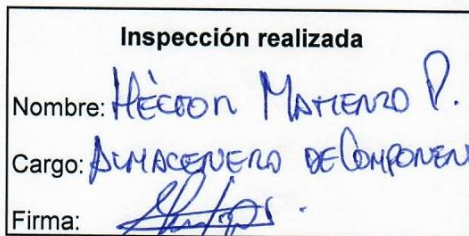 Inspección realizada
Nombre: HÉCTOR MATIENZO P.
Cargo: ALMACENERO DE COMPONEN
Firma: